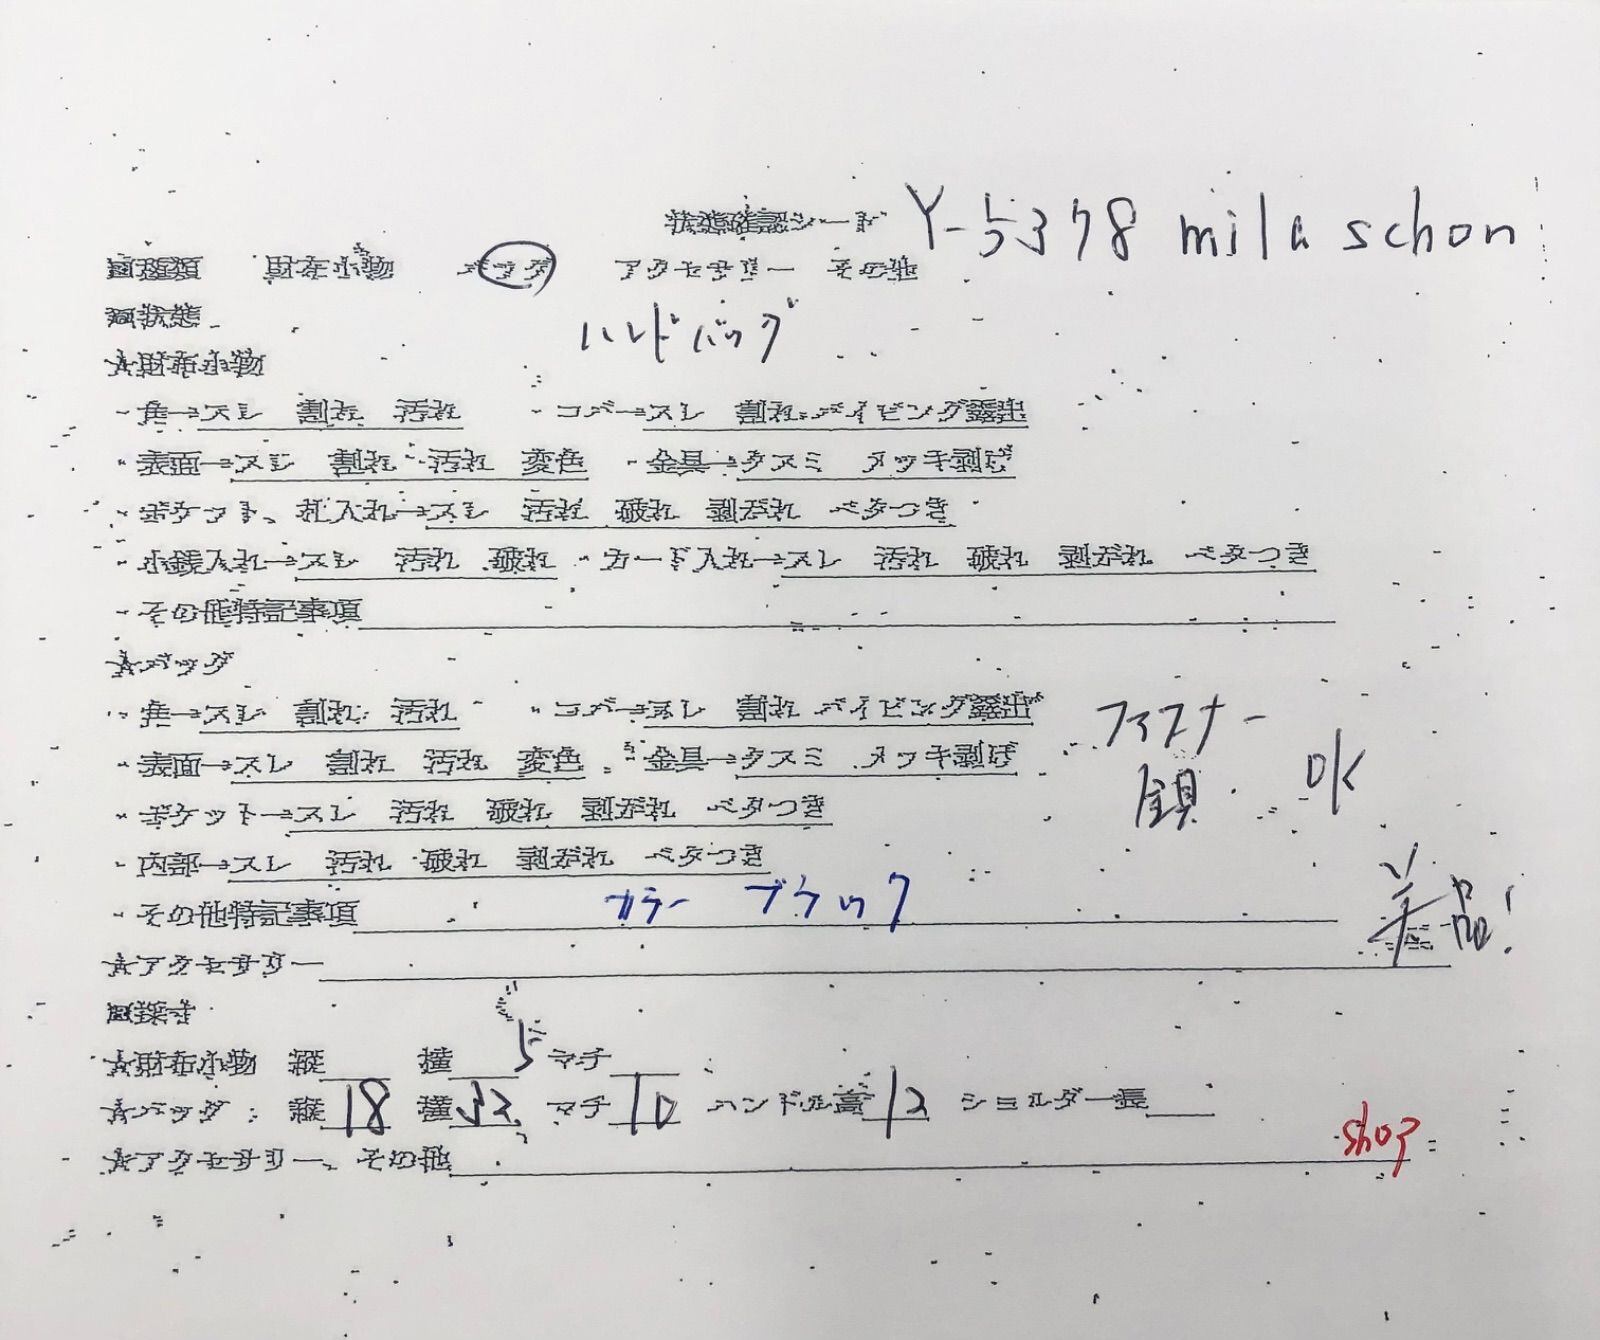 状態確認シート Y-5378 mila schon
□種類 財布小物 バッグ アクセサリー その他
□状態
ハンドバッグ
☆財布小物
・角→スレ 割れ 汚れ ・コバ→スレ 割れ パイピング露出
・表面→スレ 割れ 汚れ 変色 ・金具→クスミ メッキ剥げ
・ポケット、札入れ→スレ 汚れ 破れ 剥がれ ベタつき
・小銭入れ→スレ 汚れ 破れ ・カード入れ→スレ 汚れ 破れ 剥がれ ベタつき
・その他特記事項
☆バッグ
・角→スレ 割れ 汚れ ・コバ→スレ 割れ パイピング露出
ファスナー
・表面→スレ 割れ 汚れ 変色 ・金具→クスミ メッキ剥げ
金具 OK
・ポケット→スレ 汚れ 破れ 剥がれ ベタつき
・内部→スレ 汚れ 破れ 剥がれ ベタつき
・その他特記事項 カラー ブラック
美品!
☆アクセサリー
□採寸
☆財布小物 縦 横 マチ
☆バッグ: 縦 18 横 マチ 10 ハンドル高 12 ショルダー長
shop
☆アクセサリー、その他